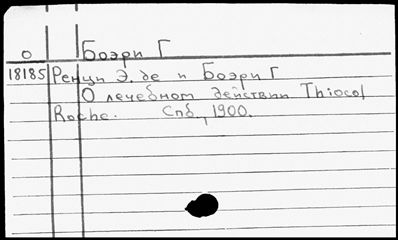 О Боэри Г
18185 Ренци Э. де и Боэри Г
О лечебном действии Thiocol
Roche. Спб., 1900.